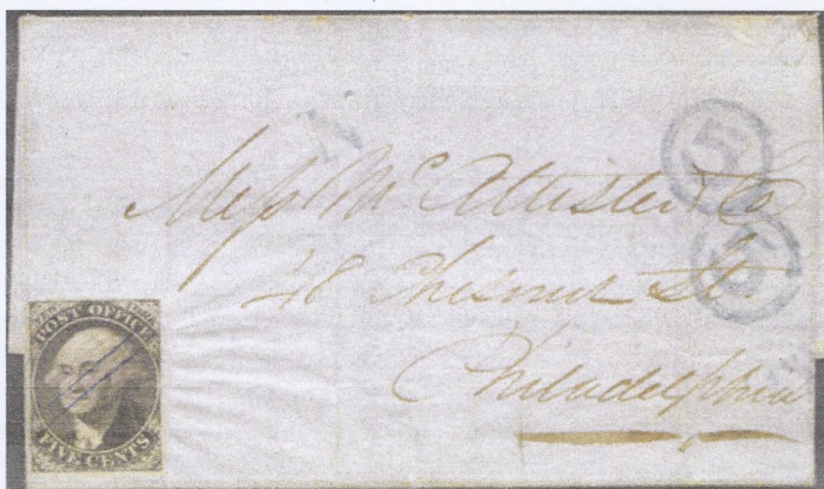 5
Mess McAllister & Co
5
48 Chesnut St.
Philadelphia
POST OFFICE
FIVE CENTS